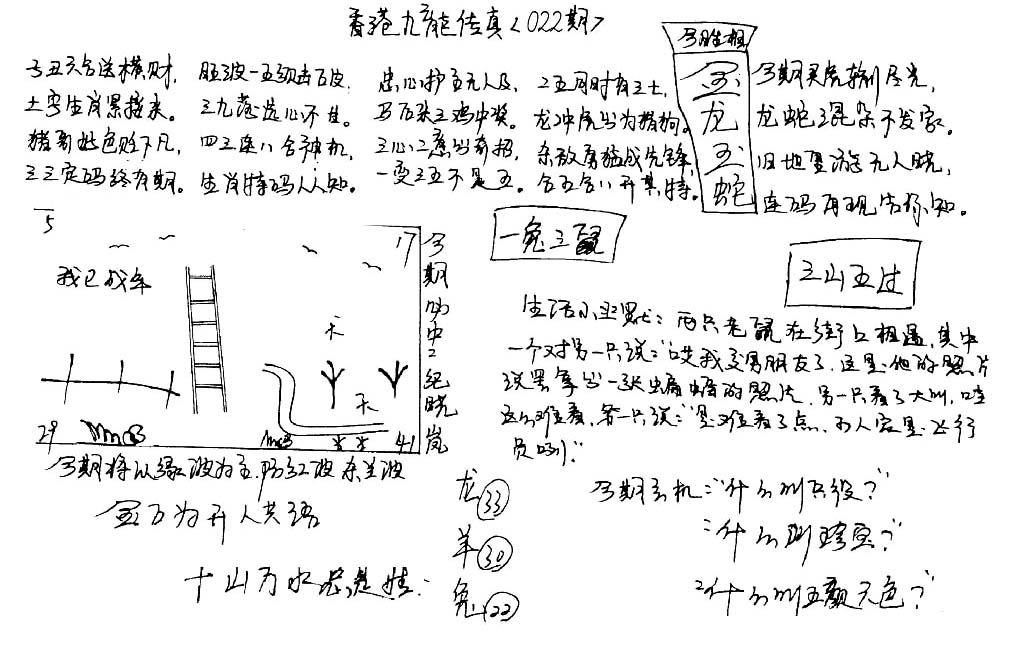 香港九龙传真<022期>
子丑六合送横财,
土字生肖累接来。
猪哥好色贬下凡,
三三定码终有期。
旺波一五须出百波
三九落选心不佳。
四三连八合神机,
生肖特码人人知。
忠心护主无人及,
马后杀三鸡中奖。
三心二意出奇招,
一变三五不是五。
二五同时有三士,
龙冲虎出为猪狗。
杀敌勇猛成先锋,
合五合八开某特。
金
龙
玉
蛇
今期灵虎输尽光,
龙蛇混杂不发家。
旧地重游无人晓,
连码再现告你知。
5
17
我已成年
天
天
29
41
今期功中2纪晓岚
一兔三鼠
三山五过
生活小
两只老鼠在街上相遇,其中
一个对另一只说:"哎我交男朋友了.这是他的照片
说罢拿出一张蝙蝠的照片.另一只看了大叫.哇
这么难看,第一只说:"是难看了点.可人家是飞行
员咧!"
今期将以绿波为主.防红波杀兰波
龙33
羊30
兔22
今期玄机:"什么叫兵役?"
"什么叫跨
什么叫五颜六色?"